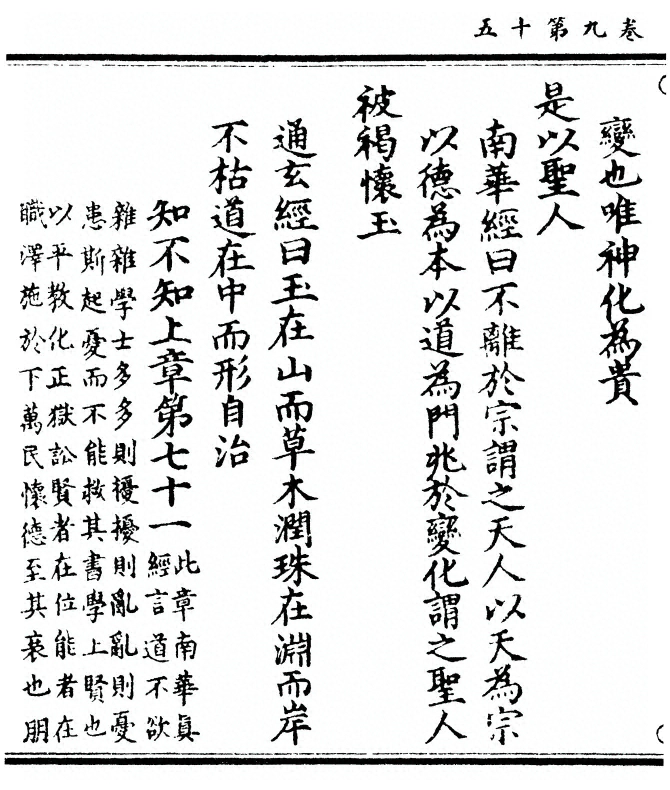 卷九第十五
變也唯神化為貴
是以聖人
南華經曰不離於宗謂之天人以天為宗
以德為本以道為門兆於變化謂之聖人
被褐懷玉
通玄經曰玉在山而草木潤珠在淵而岸
不枯道在中而形自治
知不知上章第七十一
此章南華真
經言道不欲
雜雜學士多多則擾擾則亂亂則憂
患斯起憂而不能救其書學上賢也
以平教化正獄訟賢者在位能者在
職澤施於下萬民懷德至其衰也朋